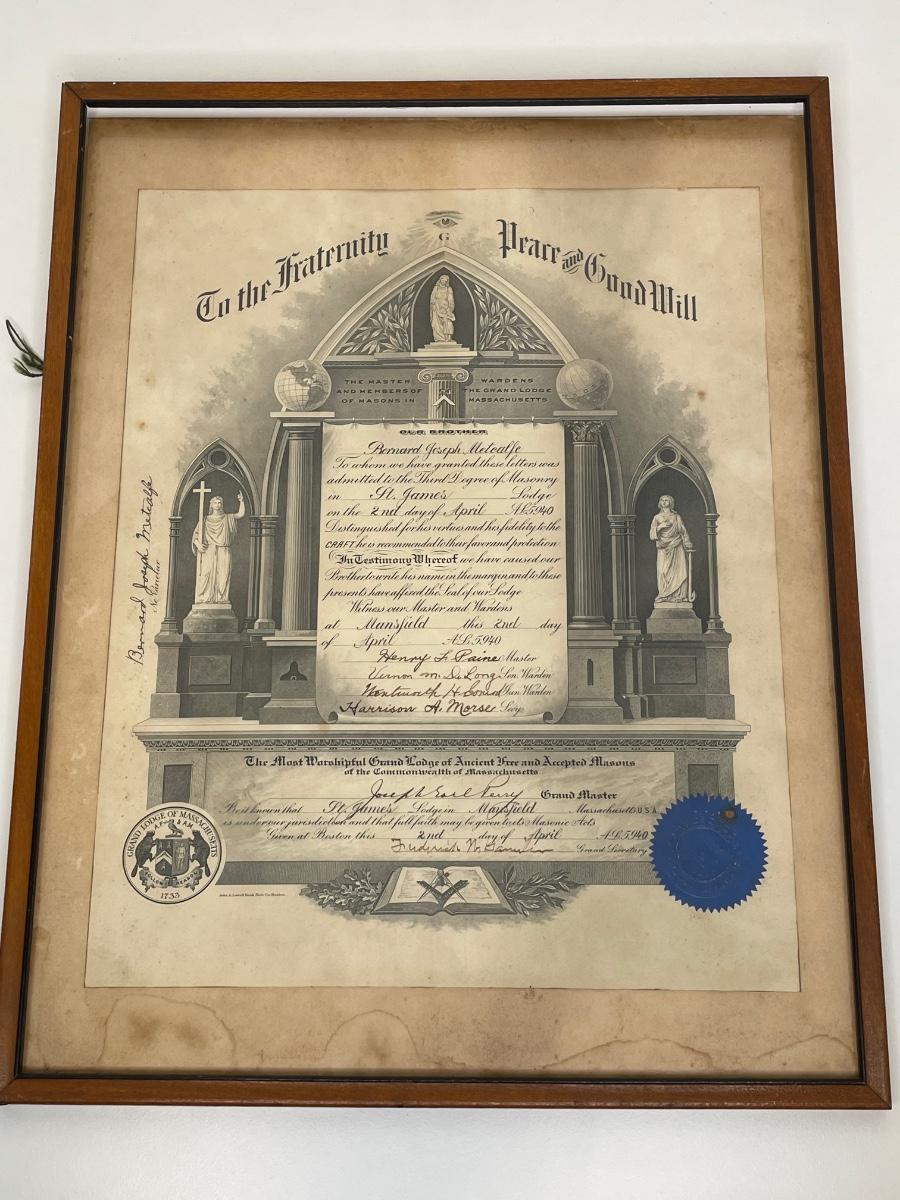 To the Fraternity Peace and Good Will
G
THE MASTER WARDENS
AND MEMBERS OF THE GRAND LODGE
OF MASONS IN MASSACHUSETTS
OUR BROTHER
Bernard Joseph Metcalfe
To whom we have granted these letters was
admitted to the Third Degree of Masonry
in St. James Lodge
on the 2nd day of April A.L. 5940
Distinguished for his virtues and his fidelity to the
CRAFT he is recommended to their favor and protection
In Testimony Whereof we have caused our
Brother to write his name in the margin and to these
presents have affixed the Seal of our Lodge
Witness our Master and Wardens
at Mansfield this 2nd day
of April A.L. 5940
Henry F. Paine Master
Vernon M. DeLong Sen. Warden
Wentworth H. Jun. Warden
Harrison A. Morse Sec'y.
Bernard Joseph Metcalfe
Ne Varietur
The Most Worshipful Grand Lodge of Ancient Free and Accepted Masons
of the Commonwealth of Massachusetts
Joseph Earl Perry Grand Master
Be it known that St. James Lodge in Mansfield Massachusetts, U.S.A.
is under our jurisdiction and that full faith may be given to its Masonic Acts
Given at Boston this 2nd day of April A.L. 5940
Frederick W. Grand Secretary
GRAND LODGE OF MASSACHUSETTS
A.F. & A.M.
FOLLOW REASON
1733